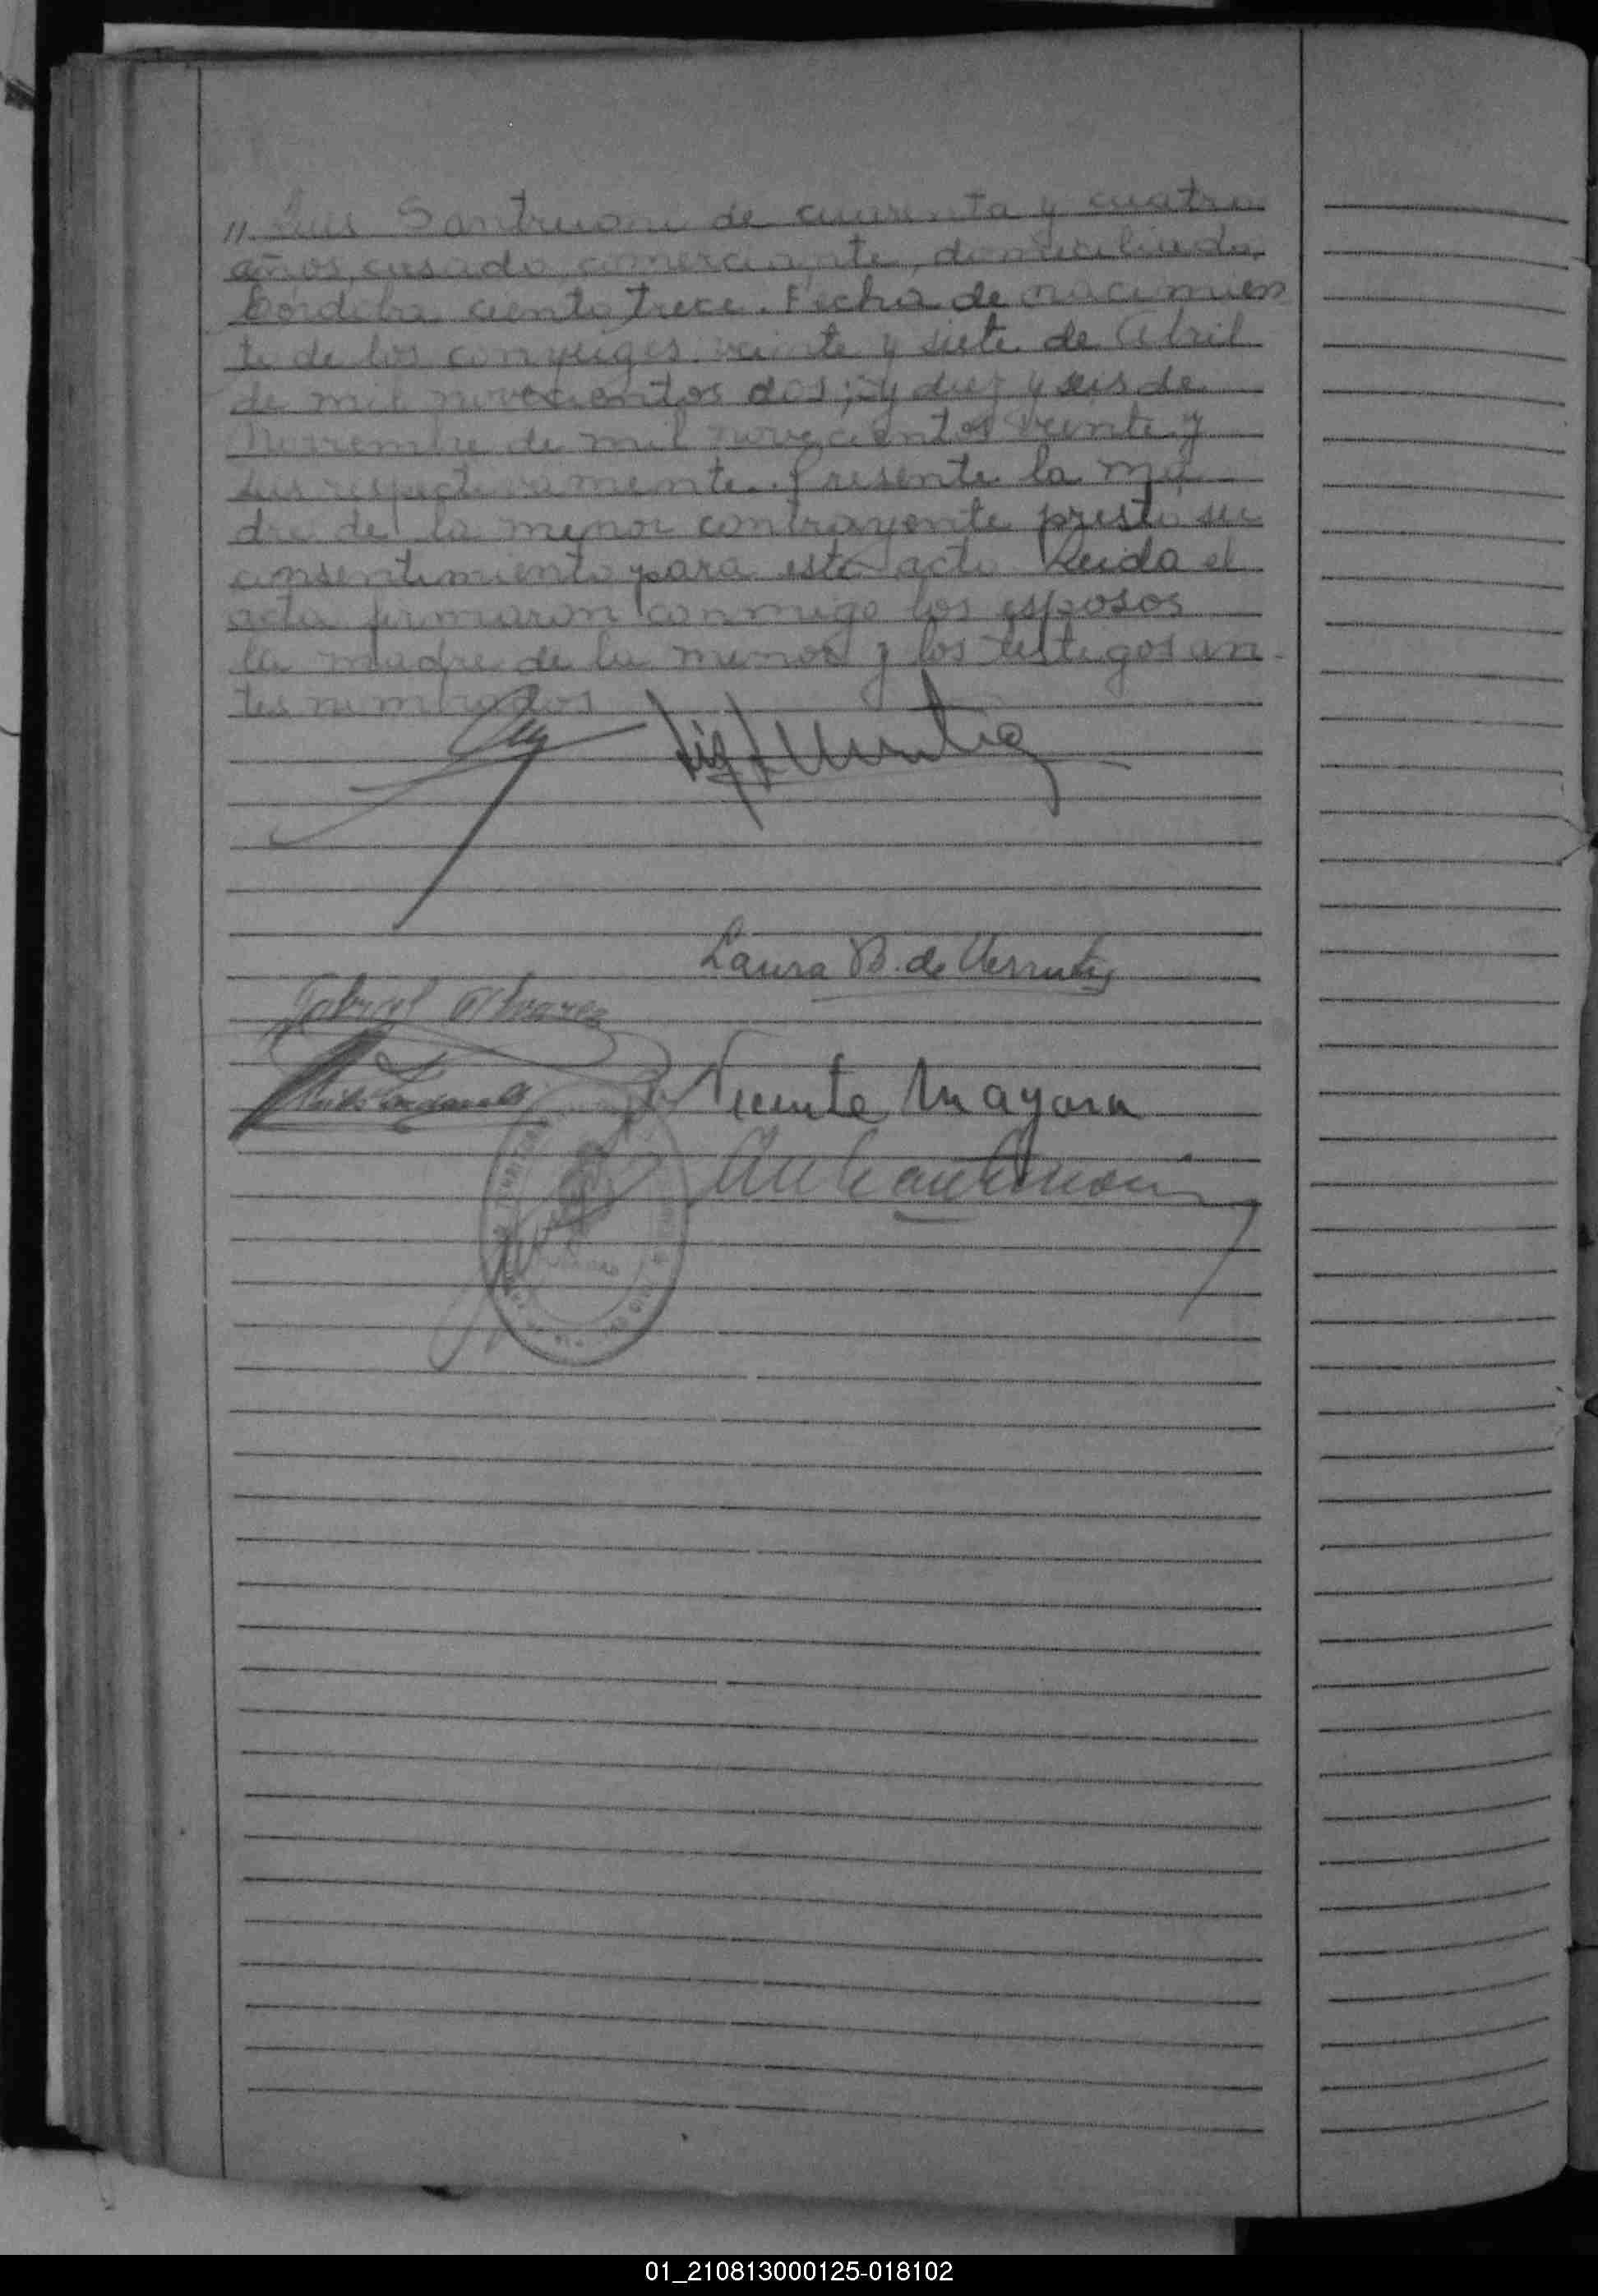 " Luis Santruoni de cuarenta y cuatro
años, casado comerciante, domiciliado,
Cordoba ciento trece. Fecha de nacimien
to de los conyuges veinte y siete de Abril
de mil novecientos dos; y diez y seis de
Noviembre de mil novecientos veinte y
seis respectivamente. Presente la ma
dre de la menor contrayente prestó su
consentimiento para este acto. Leida el
acta firmaron conmigo los esposos
la madre de la menor y los testigos an-
tes nombrados
Laura B. de Verrutia
Gabriel Alvarez
Vicente Mayora
01_210813000125-018102